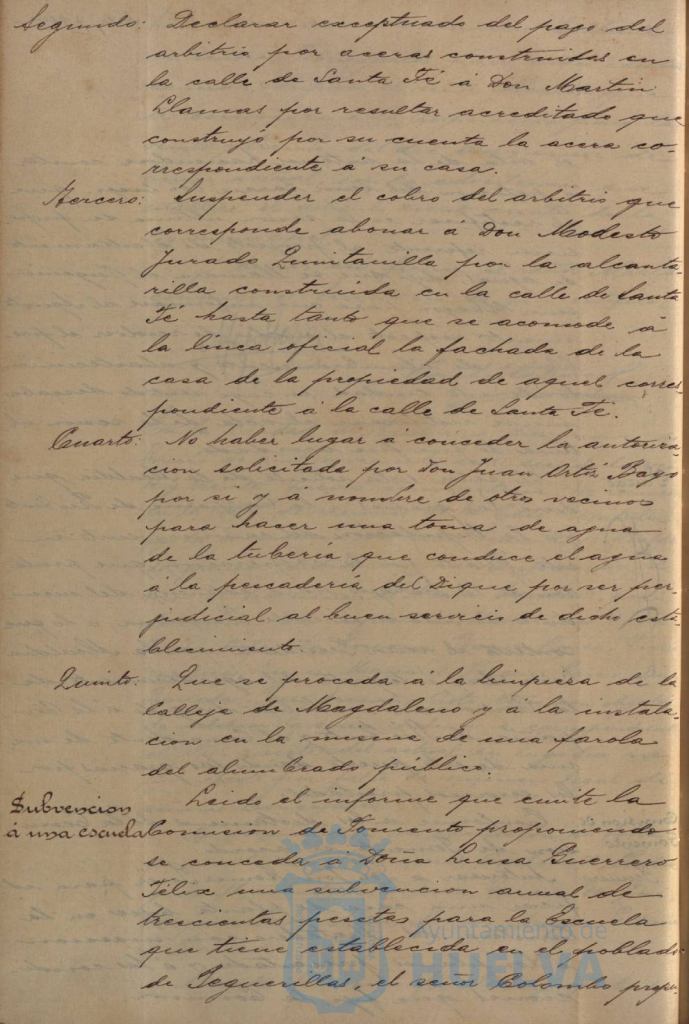 Segundo: Declarar exceptuado del pago del
arbitrio por aceras construidas en
la calle de Santa Fé á Don Martin
Llamas por resultar acreditado que
construyó por su cuenta la acera co-
rrespondiente á su casa.
Tercero: Suspender el cobro del arbitrio que
corresponde abonar á Don Modesto
Jurado Quintanilla por la alcanta-
rilla construida en la calle de Santa
Fé hasta tanto que se acomode á
la línea oficial la fachada de la
casa de la propiedad de aquel corres-
pondiente á la calle de Santa Fé.
Cuarto: No haber lugar á conceder la autoriza-
cion solicitada por Don Juan Ortiz Bayo
por si y á nombre de otros vecinos
para hacer una toma de agua
de la tubería que conduce el agua
á la pescadería del Dique por ser per-
judicial al buen servicio de dicho esta-
blecimiento.
Quinto: Que se proceda á la limpieza de la
Calleja de Magdaleno y á la instala-
cion en la misma de una farola
del alumbrado público.
Subvencion
á una escuela
Leido el informe que emite la
Comision de Fomento proponiendo
se conceda á Doña Luisa Guerrero
Félix una subvencion anual de
trescientas pesetas para la Escuela
que tiene establecida en el poblado
de Peguerillas, el señor Colombo propu-
Ayuntamiento de
HUELVA